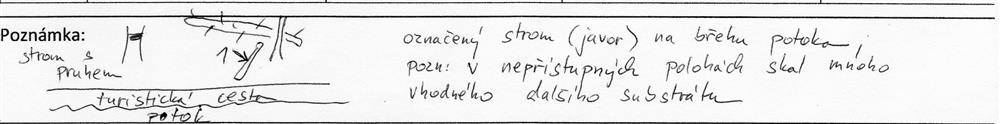 Poznámka:
strom s
pruhem
1
turistická cesta
potok
označený strom (javor) na břehu potoka,
pozn: v nepřístupných polohách skal mnoho
vhodného dalšího substrátu